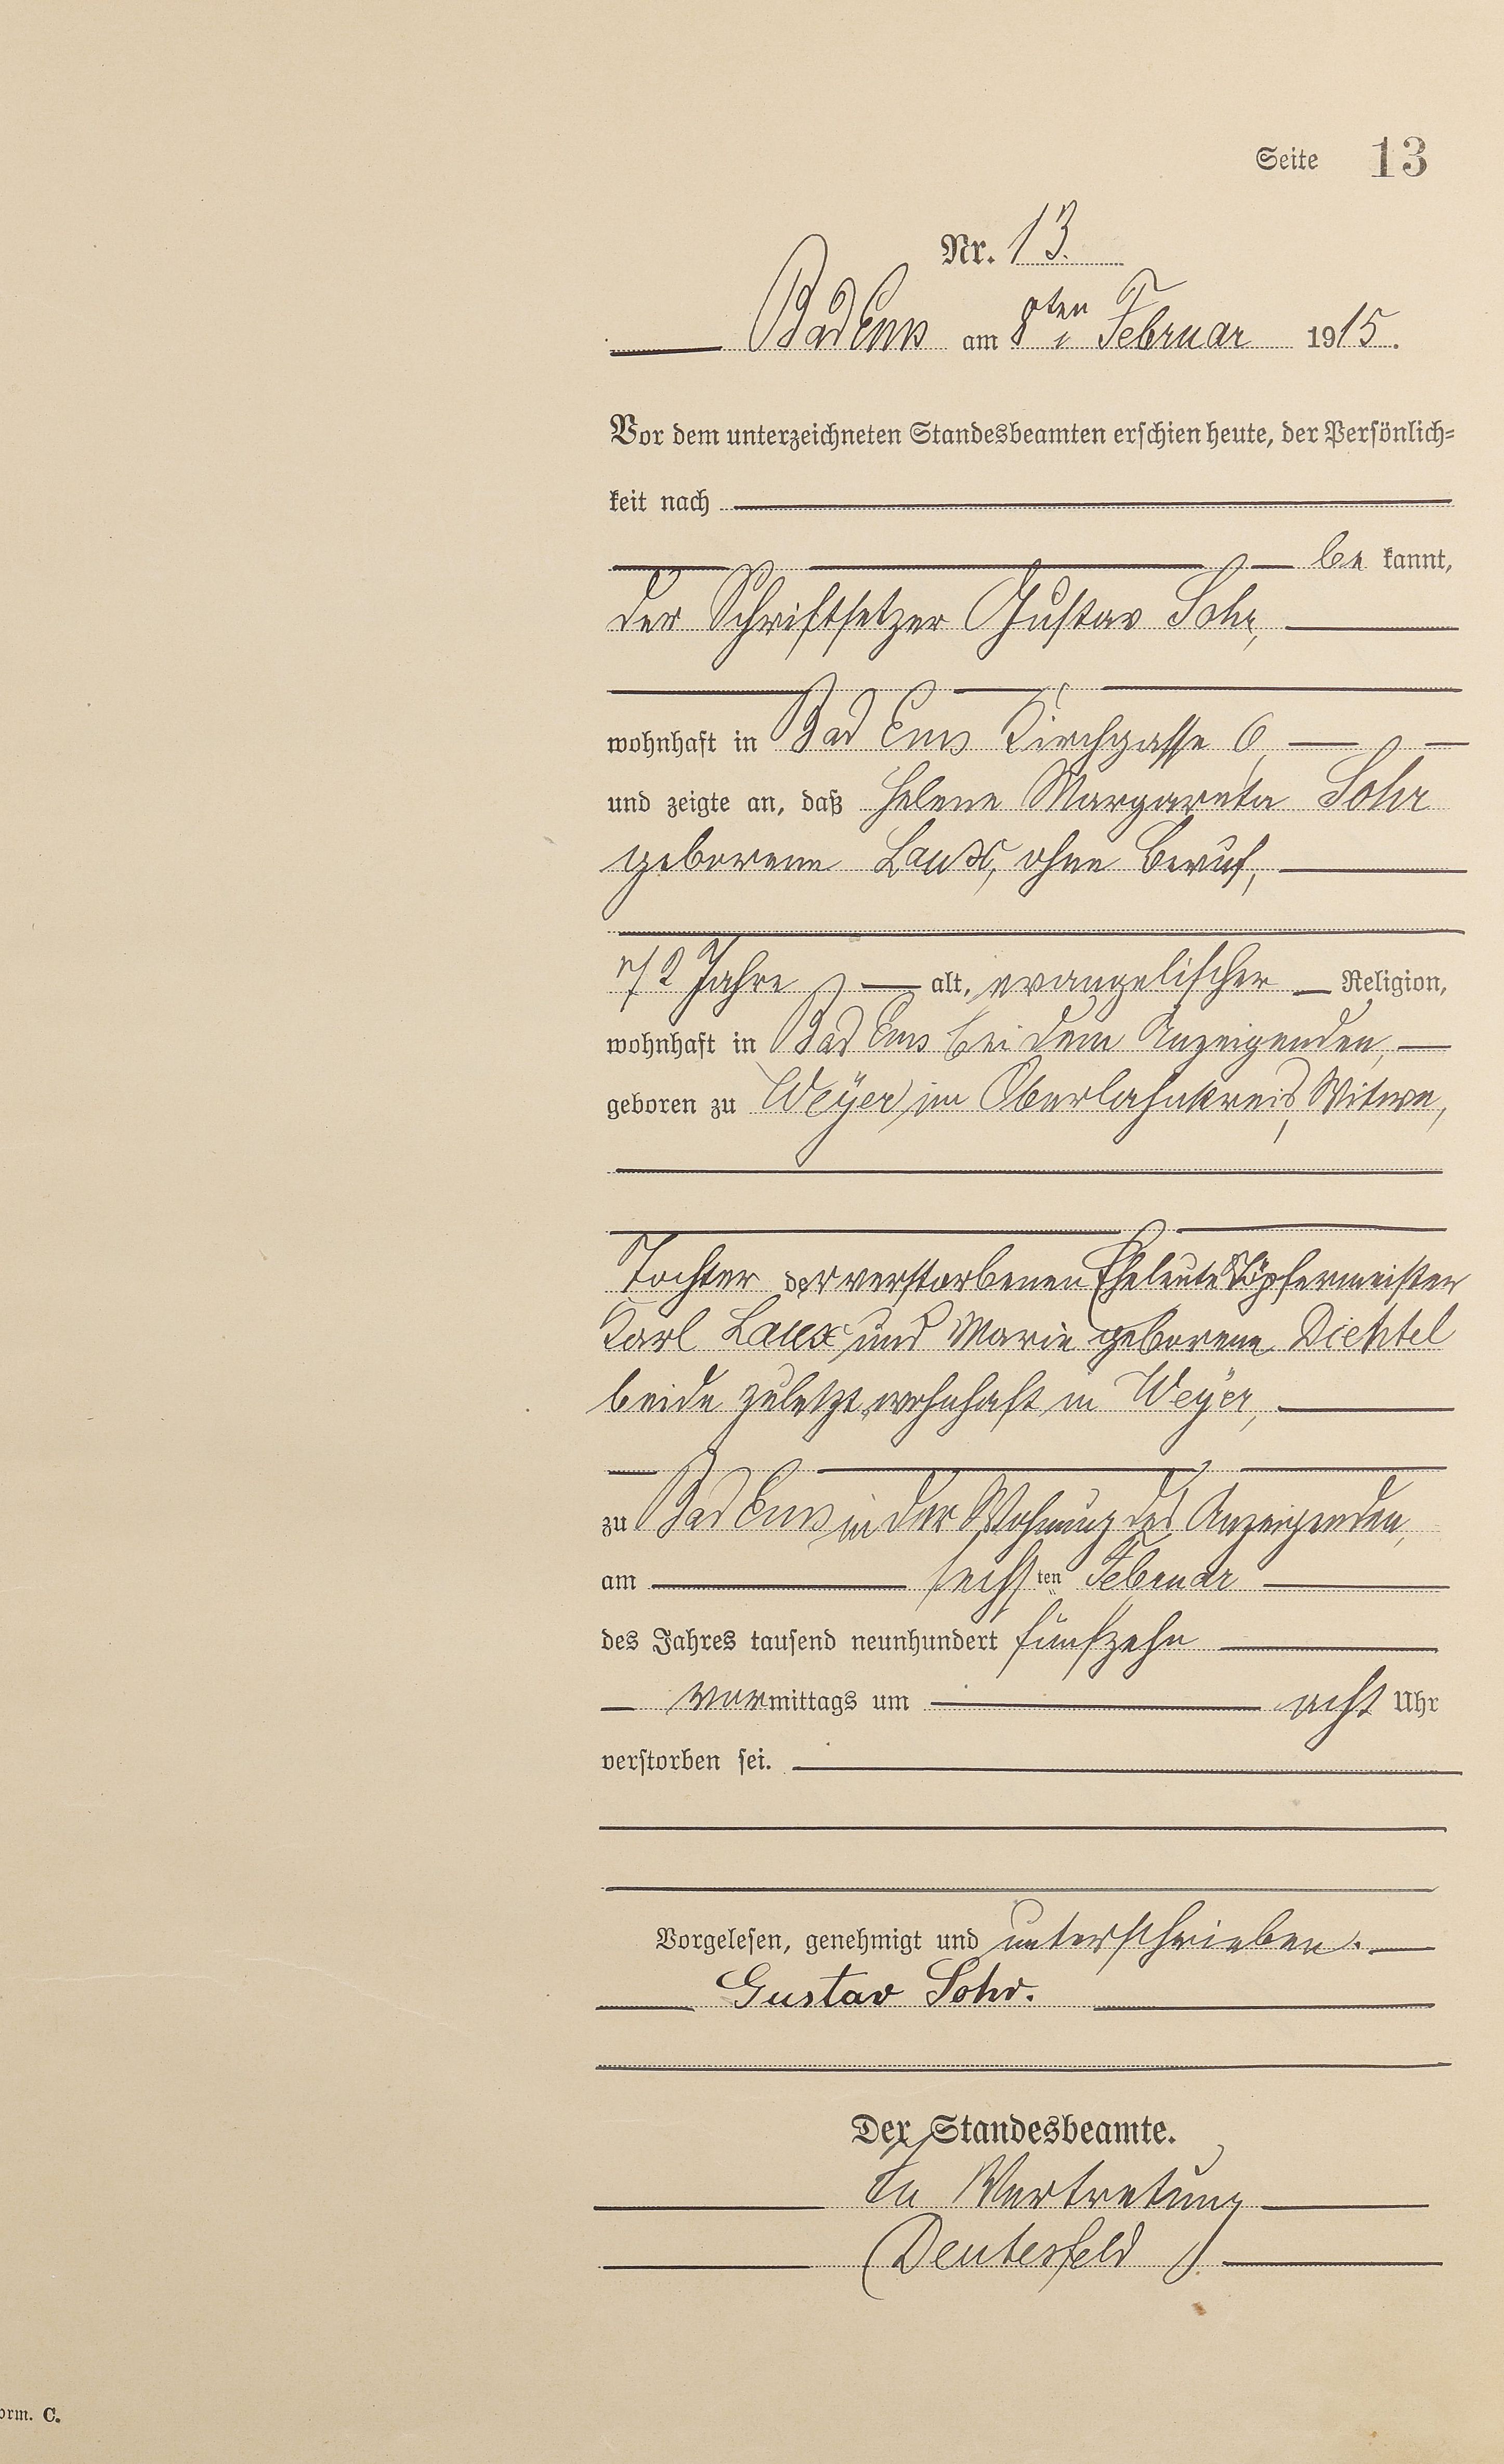 Seite 13
Nr. 13.
Bad Ems am 8ten Februar 1915.
Vor dem unterzeichneten Standesbeamten erschien heute, der Persönlich-
keit nach
be kannt,
der Schriftsetzer Gustav Sohr,
wohnhaft in Bad Ems Kirchgasse 6
und zeigte an, daß Helene Margareta Sohr
geborene Laux, ohne Beruf,
72 Jahre alt, evangelischer Religion,
wohnhaft in Bad Ems bei dem Anzeigenden,
geboren zu Weyer im Oberlahnkreis, Witwe,
Tochter der verstorbenen Eheleute Töpfermeister
Karl Laux und Marie geborene
beide zuletzt wohnhaft in Weyer,
zu Bad Ems in der Wohnung des Anzeigenden,
am sechsten Februar
des Jahres tausend neunhundert fünfzehn
vormittags um acht Uhr
verstorben sei.
Vorgelesen, genehmigt und unterschrieben.
Gustav Sohr.
Der Standesbeamte.
In Vertretung
Deutesfeld
orm. C.